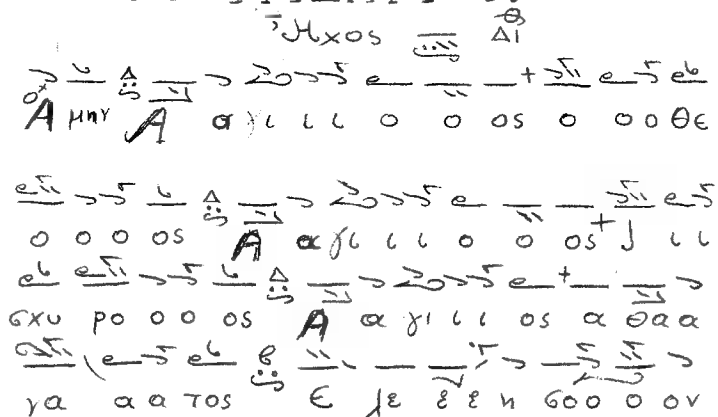 Ἦχος Δι
Ἀ μην Α α γι ι ι ο ο ος ο ο ο θε
ο ο ο ος Α α γι ι ι ο ο ος ι ι ι
σχυ ρο ο ο ος Α α γι ι ι ος α θα α
να α α τος Ε λε ε ε η σοο ο ον